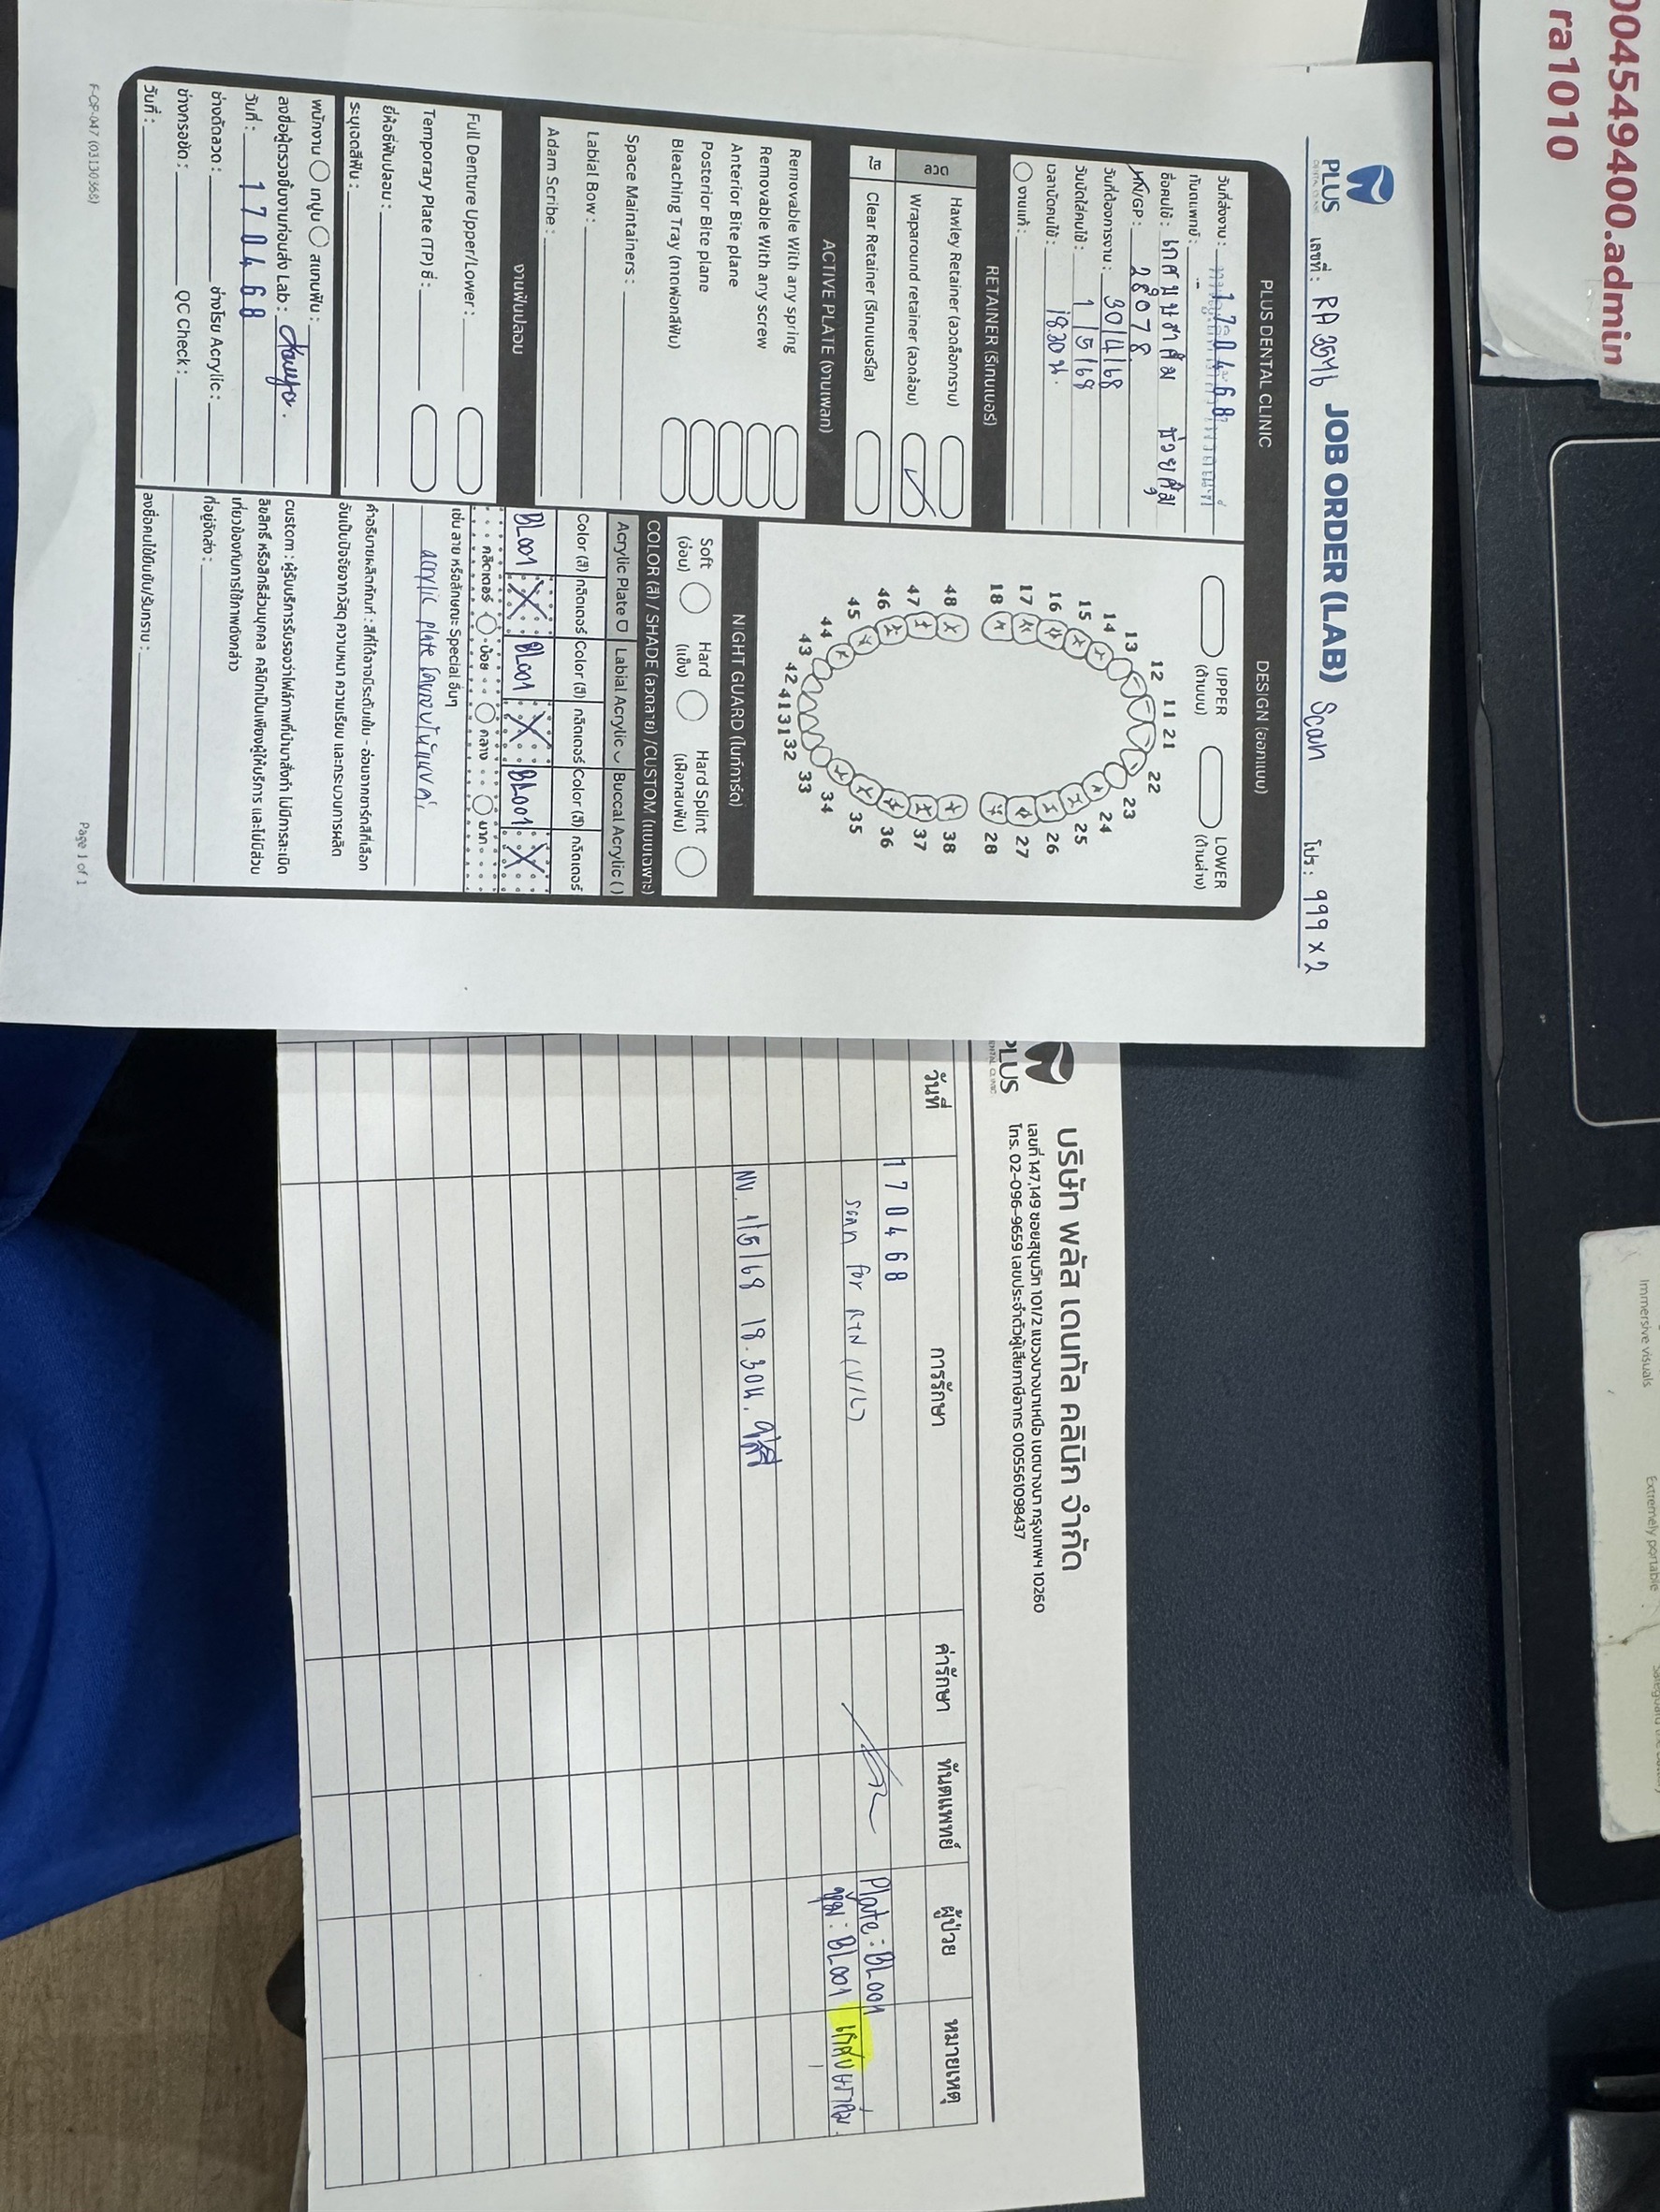 004549400.admin
ra1010
PLUS
DENTAL CLINIC
เลขที่ : RA 2546 JOB ORDER (LAB) Scan โปร : 999 x 2
PLUS DENTAL CLINIC
วันที่ส่งงาน : 170468
ทันตแพทย์ :
ชื่อคนไข้ :
HN/GP : 28078
วันที่ต้องการงาน : 30/4/68
วันนัดใส่คนไข้ : 1/5/68
เวลานัดคนไข้ : 18.30 น.
งานแก้ :
RETAINER (รีเทนเนอร์)
ลวด
Hawley Retainer (ลวดล็อกกราม)
Wraparound retainer (ลวดล้อม)
ใส
Clear Retainer (รีเทนเนอร์ใส)
ACTIVE PLATE (งานเพลท)
Removable With any spring
Removable With any screw
Anterior Bite plane
Postorior Bite plane
Bleaching Tray (ถาดฟอกสีฟัน)
Space Maintainers :
Labial Bow :
Adam Scribe :
งานฟันปลอม
Full Denture Upper/Lower :
Temporary Plate (TP) ซี่ :
ยี่ห้อซี่ฟันปลอม :
ระบุเฉดสีฟัน :
พนักงาน เทปูน สแกนฟัน :
ลงชื่อผู้ตรวจชิ้นงานก่อนส่ง Lab :
วันที่ : 170468
ช่างดัดลวด : ช่างโรย Acrylic :
ช่างกรอขัด : QC Check :
วันที่ :
DESIGN (ออกแบบ)
UPPER (ด้านบน)
LOWER (ด้านล่าง)
18 17 16 15 14 13 12 11 21 22 23 24 25 26 27 28
48 47 46 45 44 43 42 41 31 32 33 34 35 36 37 38
NIGHT GUARD (ไนท์การ์ด)
Soft (อ่อน)
Hard (แข็ง)
Hard Splint (เฝือกสบฟัน)
COLOR (สี) / SHADE (ลวดลาย) /CUSTOM (แบบเฉพาะ)
Acrylic Plate Labial Acrylic Buccal Acrylic ( )
Color (สี) กลิตเตอร์ Color (สี) กลิตเตอร์ Color (สี) กลิตเตอร์
BL001 X BL001 X BL001 X
กลิตเตอร์ น้อย กลาง มาก
เช่น ลาย หรือลักษณะ Special อื่นๆ
acrylic plate
คำอธิบายผลิตภัณฑ์ : สีที่ได้อาจมีระดับเข้ม - อ่อนจากชาร์ทสีที่เลือก
อันเป็นปัจจัยจากวัสดุ ความหนา ความเรียบ และกระบวนการผลิต
custom : ผู้รับบริการรับรองว่าไฟล์ภาพที่นำมาสั่งทำ ไม่มีการละเมิด
ลิขสิทธิ์ หรือสิทธิส่วนบุคคล คลินิกเป็นเพียงผู้ให้บริการ และไม่มีส่วน
เกี่ยวข้องกับการใช้ภาพดังกล่าว
ที่อยู่จัดส่ง :
ลงชื่อคนไข้ยืนยัน/รับทราบ :
F-OP-047 (03130368)
Page 1 of 1
PLUS
DENTAL CLINIC
บริษัท พลัส เดนทัล คลินิก จำกัด
เลขที่ 147,149 ซอยสุขุมวิท 101/2 แขวงบางนาเหนือ เขตบางนา กรุงเทพฯ 10260
โทร. 02-096-9659 เลขประจำตัวผู้เสียภาษีอากร 0105561098437
วันที่ การรักษา ค่ารักษา ทันตแพทย์ ผู้ป่วย หมายเหตุ
170468
scan for RTN (U/L)
Plate : BL001
ตุ่ม : BL001
NV. 1/5/68 18.30น.
Immersive visuals
Extremely portable